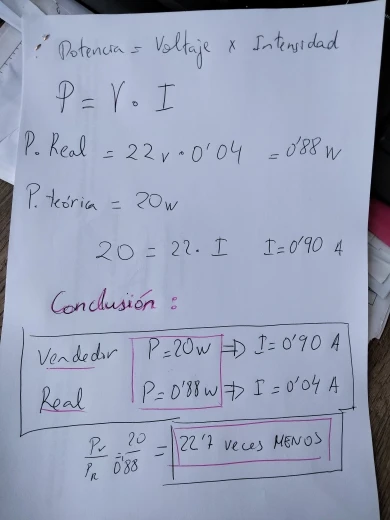 Potencia = Voltaje x Intensidad
P = V · I
P. Real = 22v · 0'04 = 0'88 W
P. teórica = 20w
20 = 22 · I I = 0'90 A
Conclusión :
Vendedor P = 20w ⇒ I = 0'90 A
Real P = 0'88 w ⇒ I = 0'04 A
Pv/PR = 20/0'88 = 22'7 veces MENOS